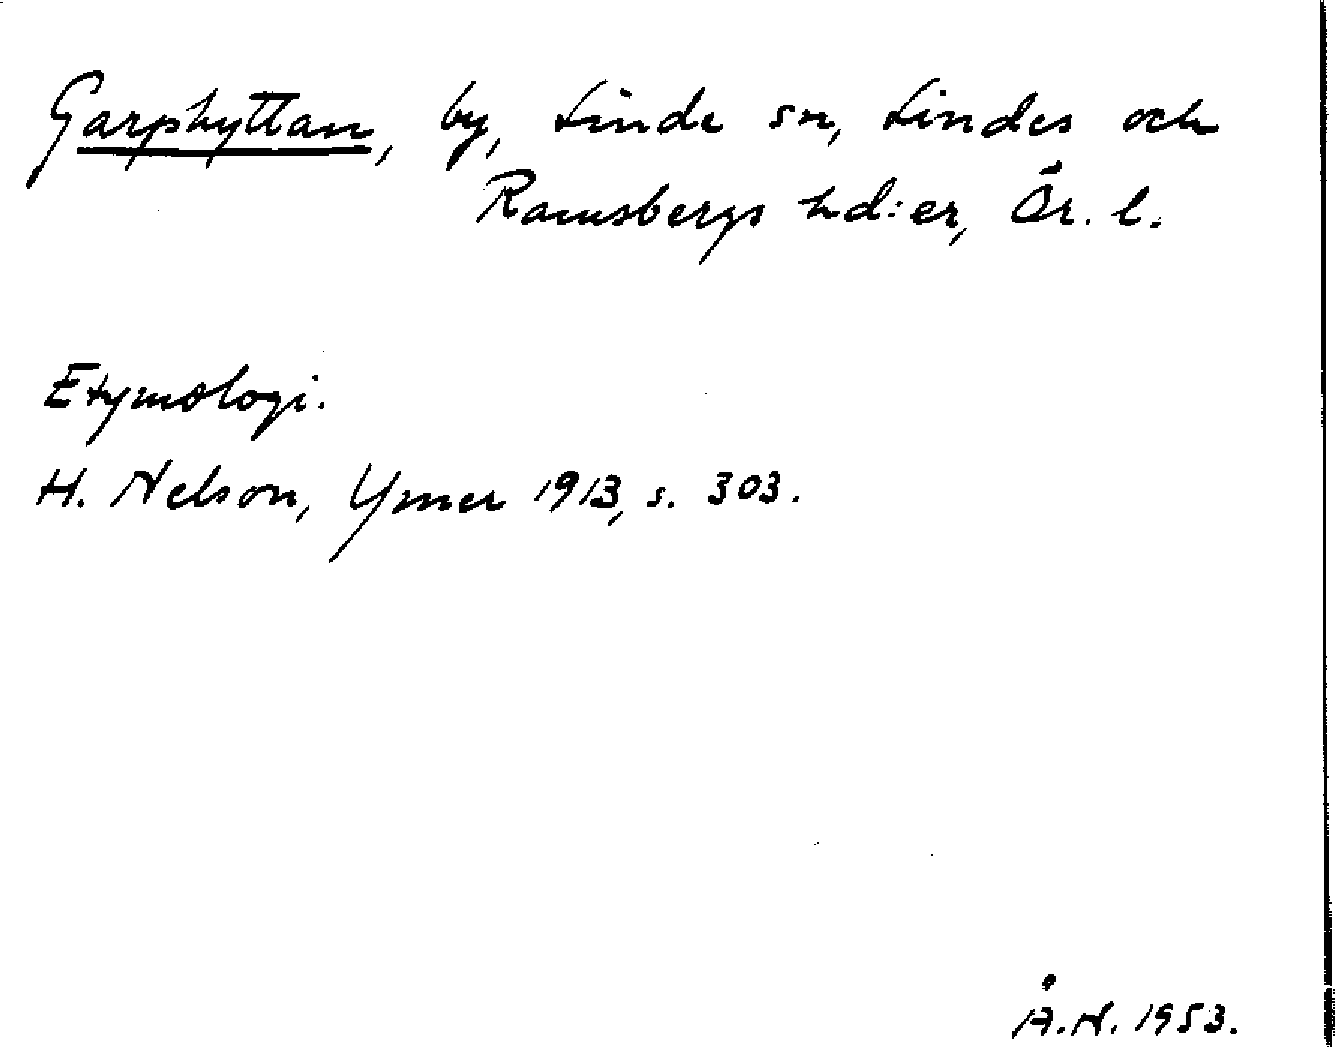 Garphyttan, by, Linde sn, Lindes och
Ramsbergs hd:er, Ör. l.
Etymologi.
H. Nelson, Ymer 1913, s. 303.
Å.N. 1953.